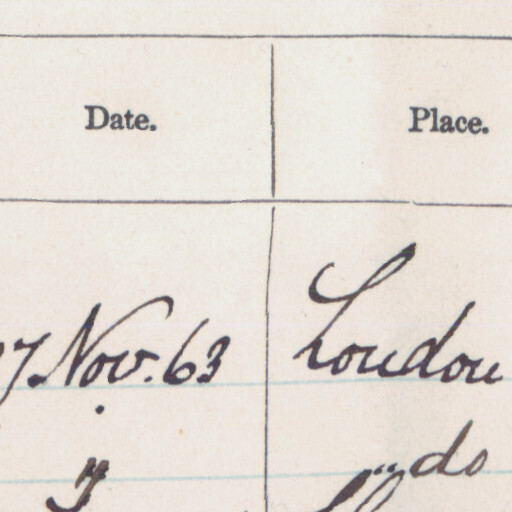 Date. Place.
7 Nov. 63 London
" do